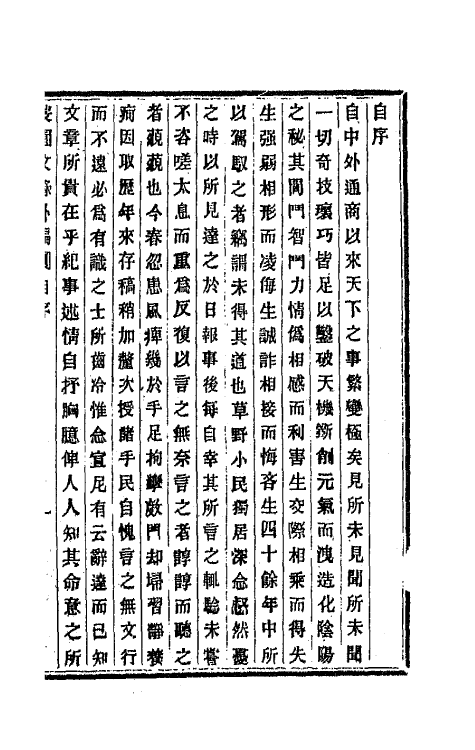 自序
自中外通商以來天下之事繁變極矣見所未見聞所未聞
一切奇技瓌巧皆足以鑿破天機斵削元氣而洩造化陰陽
之秘其間鬥智鬥力情僞相感而利害生交際相乘而得失
生强弱相形而凌侮生誠詐相接而悔吝生四十餘年中所
以駕馭之者竊謂未得其道也草野小民獨居深念怒然憂
之時以所見達之於日報事後每自幸其所言之輒驗未嘗
不咨嗟太息而重爲反復以言之無奈言之者諄諄而聽之
者藐藐也今春忽患風痺幾於手足拘攣敓門却埽習靜養
疴因取歷年來存稿稍加釐次授諸手民自愧言之無文行
而不遠必爲有識之士所齒冷惟念宣尼有云辭達而已知
文章所貴在乎紀事述情自抒胸臆俾人人知其命意之所
弢園文錄外編 自序 一